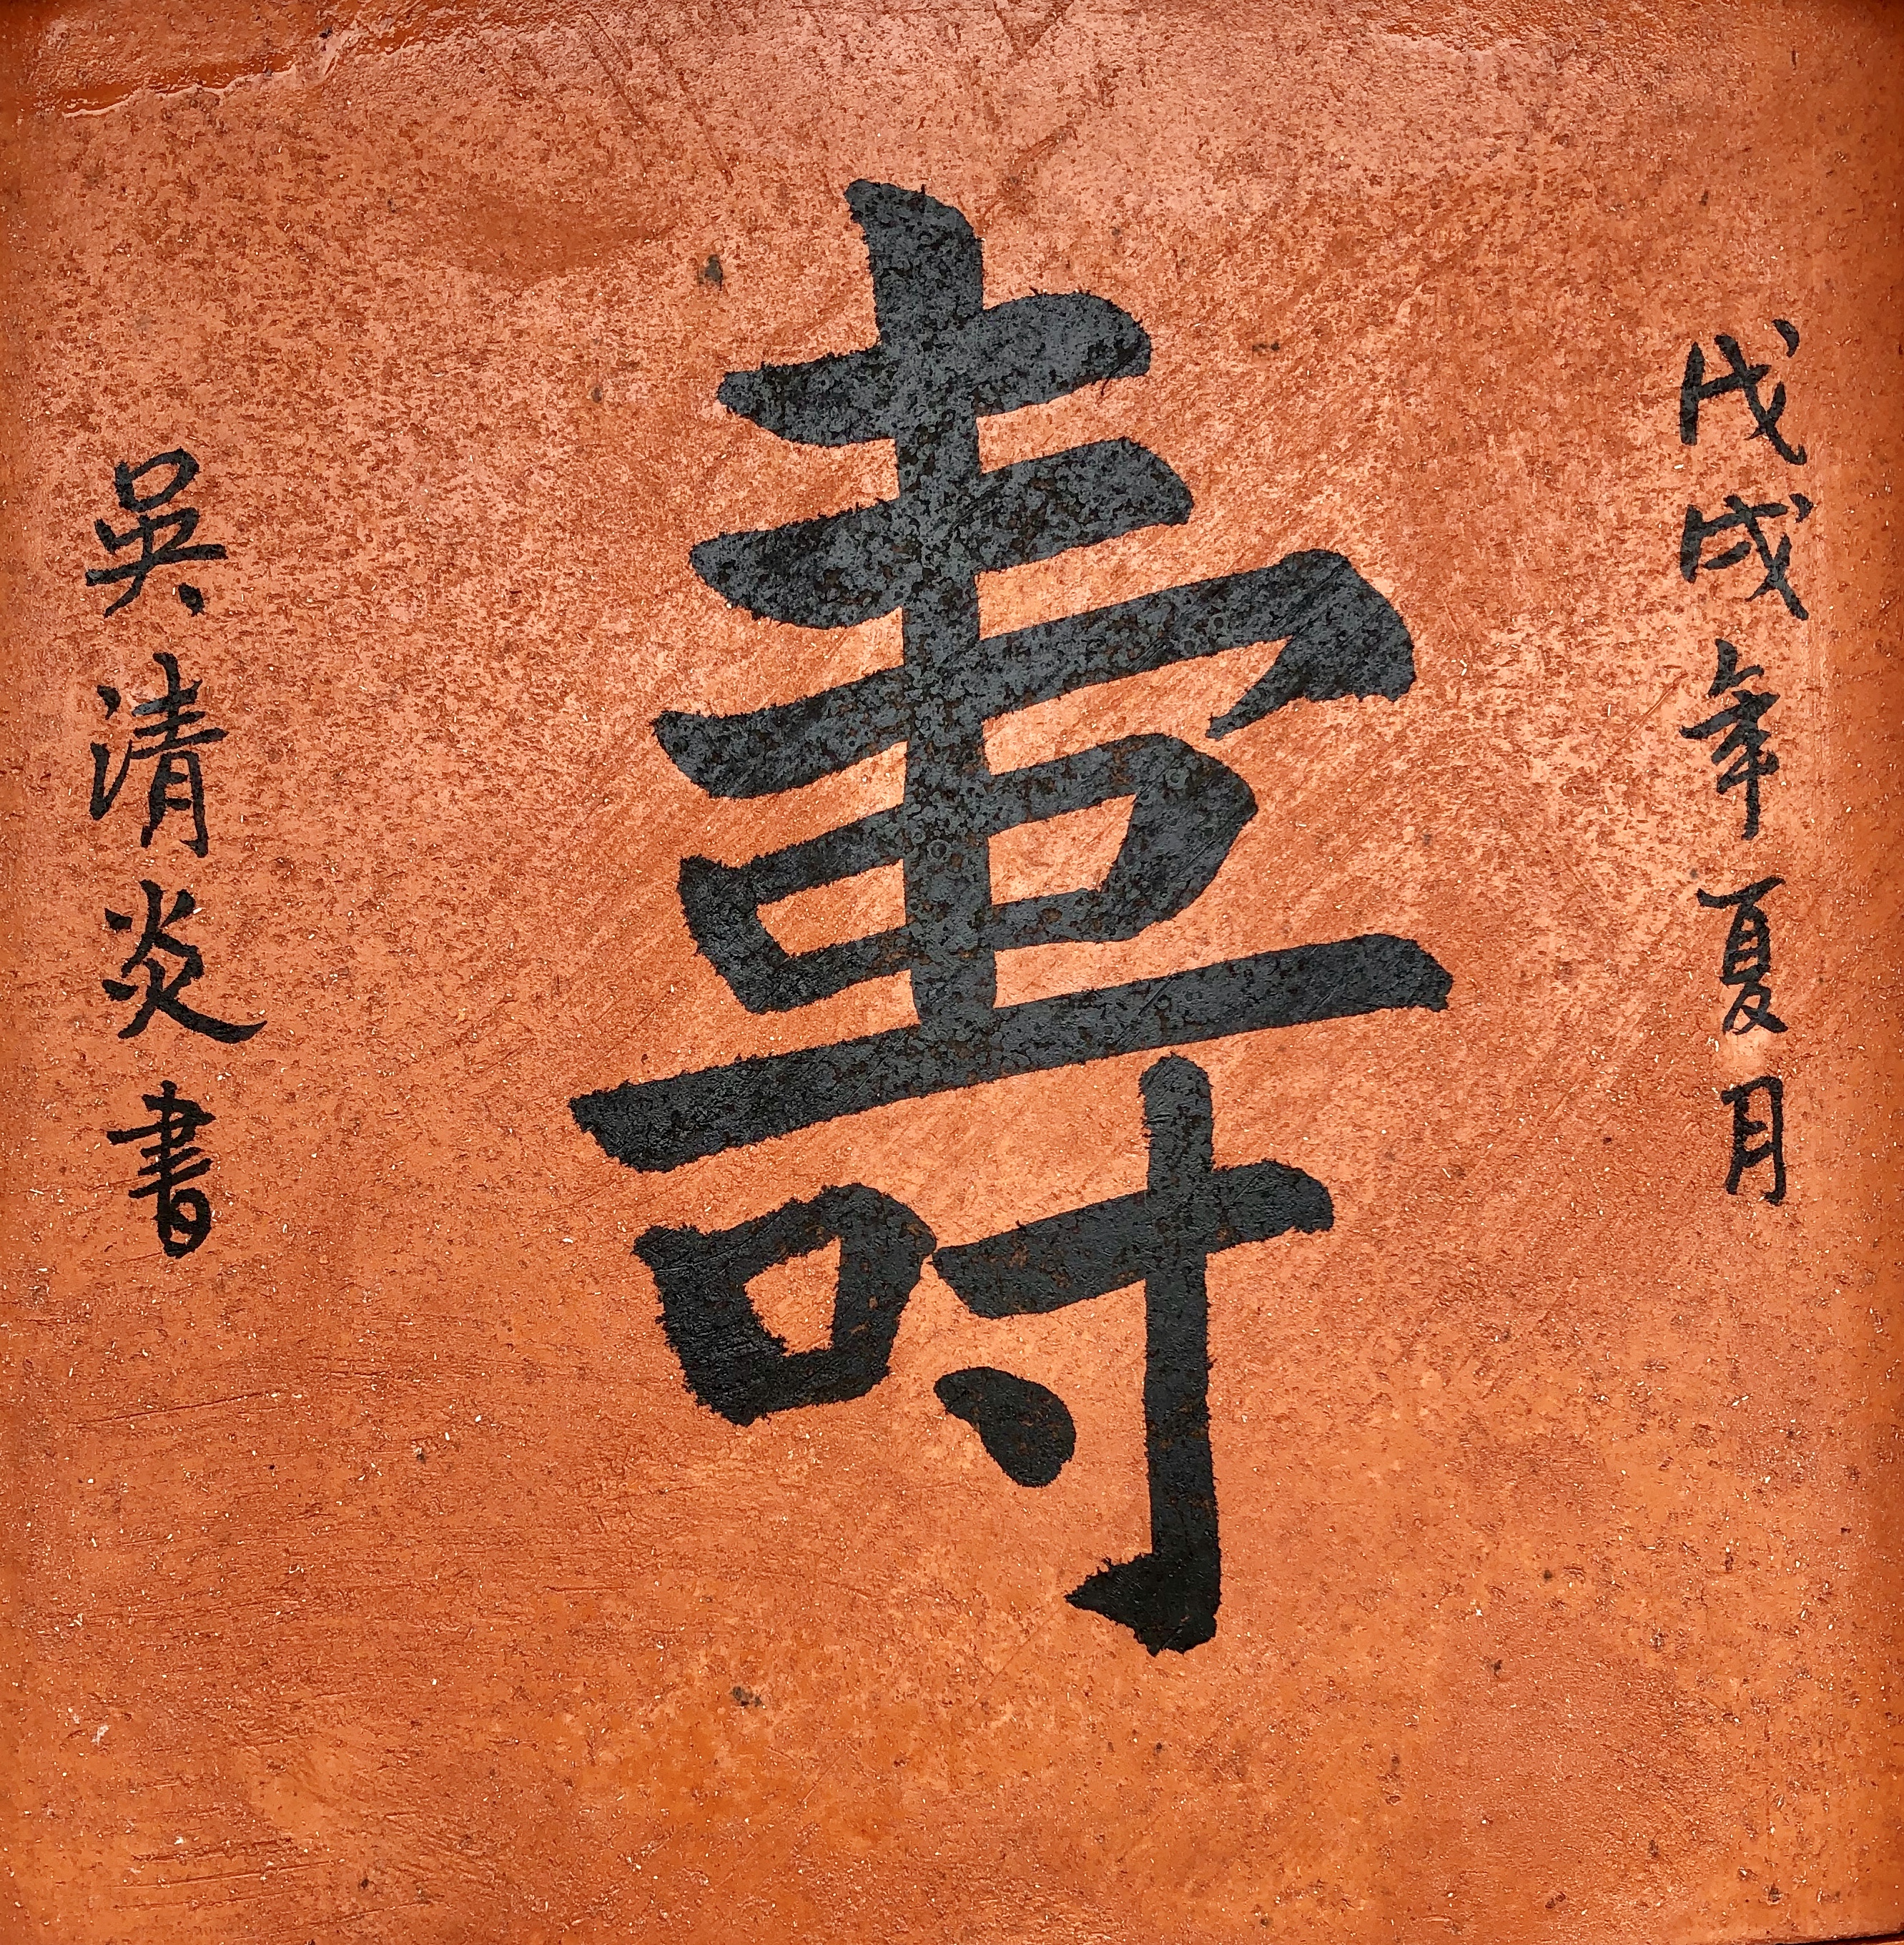 戊戌年夏月
壽
吳清炎書